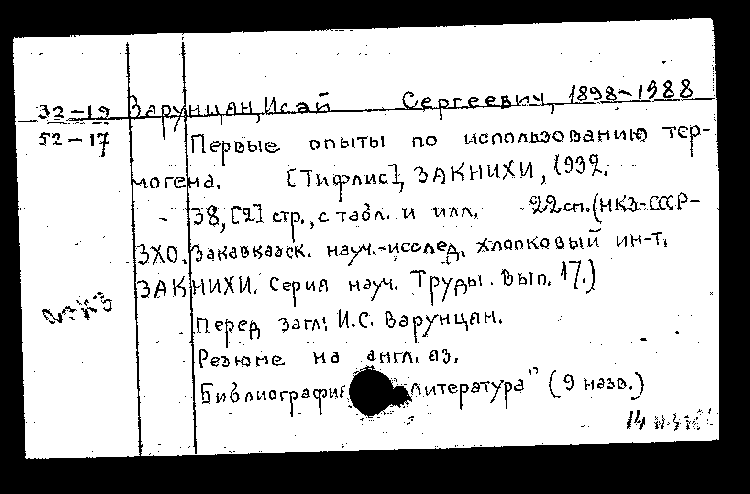 32-19 Варунцан, Исай Сергеевич, 1898-1988
52-17 Первые опыты по использованию тер-
могена. [Тифлис], ЗАКНИХИ, 1932.
38, [2] стр., с табл. и илл. 22 см. (НКЗ-СССР-
ЗХО. Закавказск. науч.-исслед. хлопковый ин-т.
ЗАКНИХИ. Серия науч. Труды. Вып. 17.)
Перед загл: И.С. Варунцан.
Резюме на англ. яз.
Библиография Литература" (9 назв.)
14